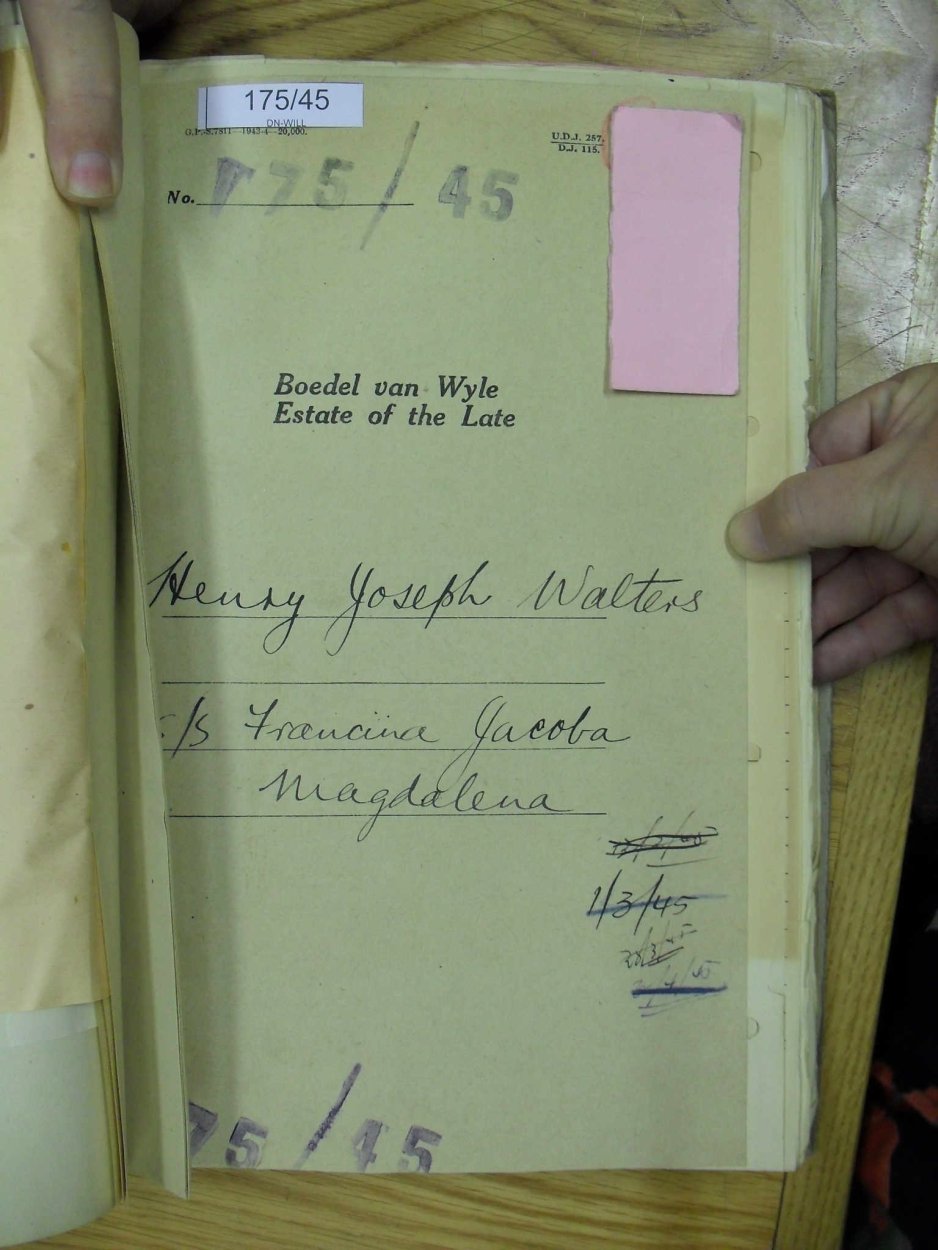 175/45
DN-WILL
G.P.-S.7811—1943-4—20,000.
U.D.J. 257.
D.J. 115.
No. 175/45
Boedel van Wyle
Estate of the Late
Henry Joseph Walters
/s Francina Jacoba
Magdalena
1/3/45
75/45